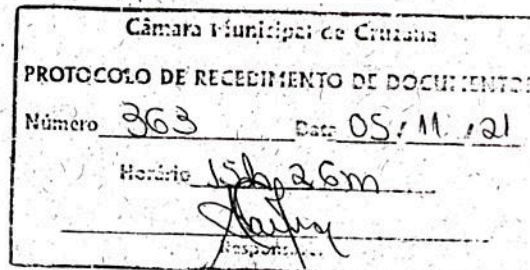 Câmara Municipal de
PROTOCOLO DE RECEBIMENTO DE DOCUMENTOS
Número 363 Data 05/11/21
Horário 15h26m
Responsável